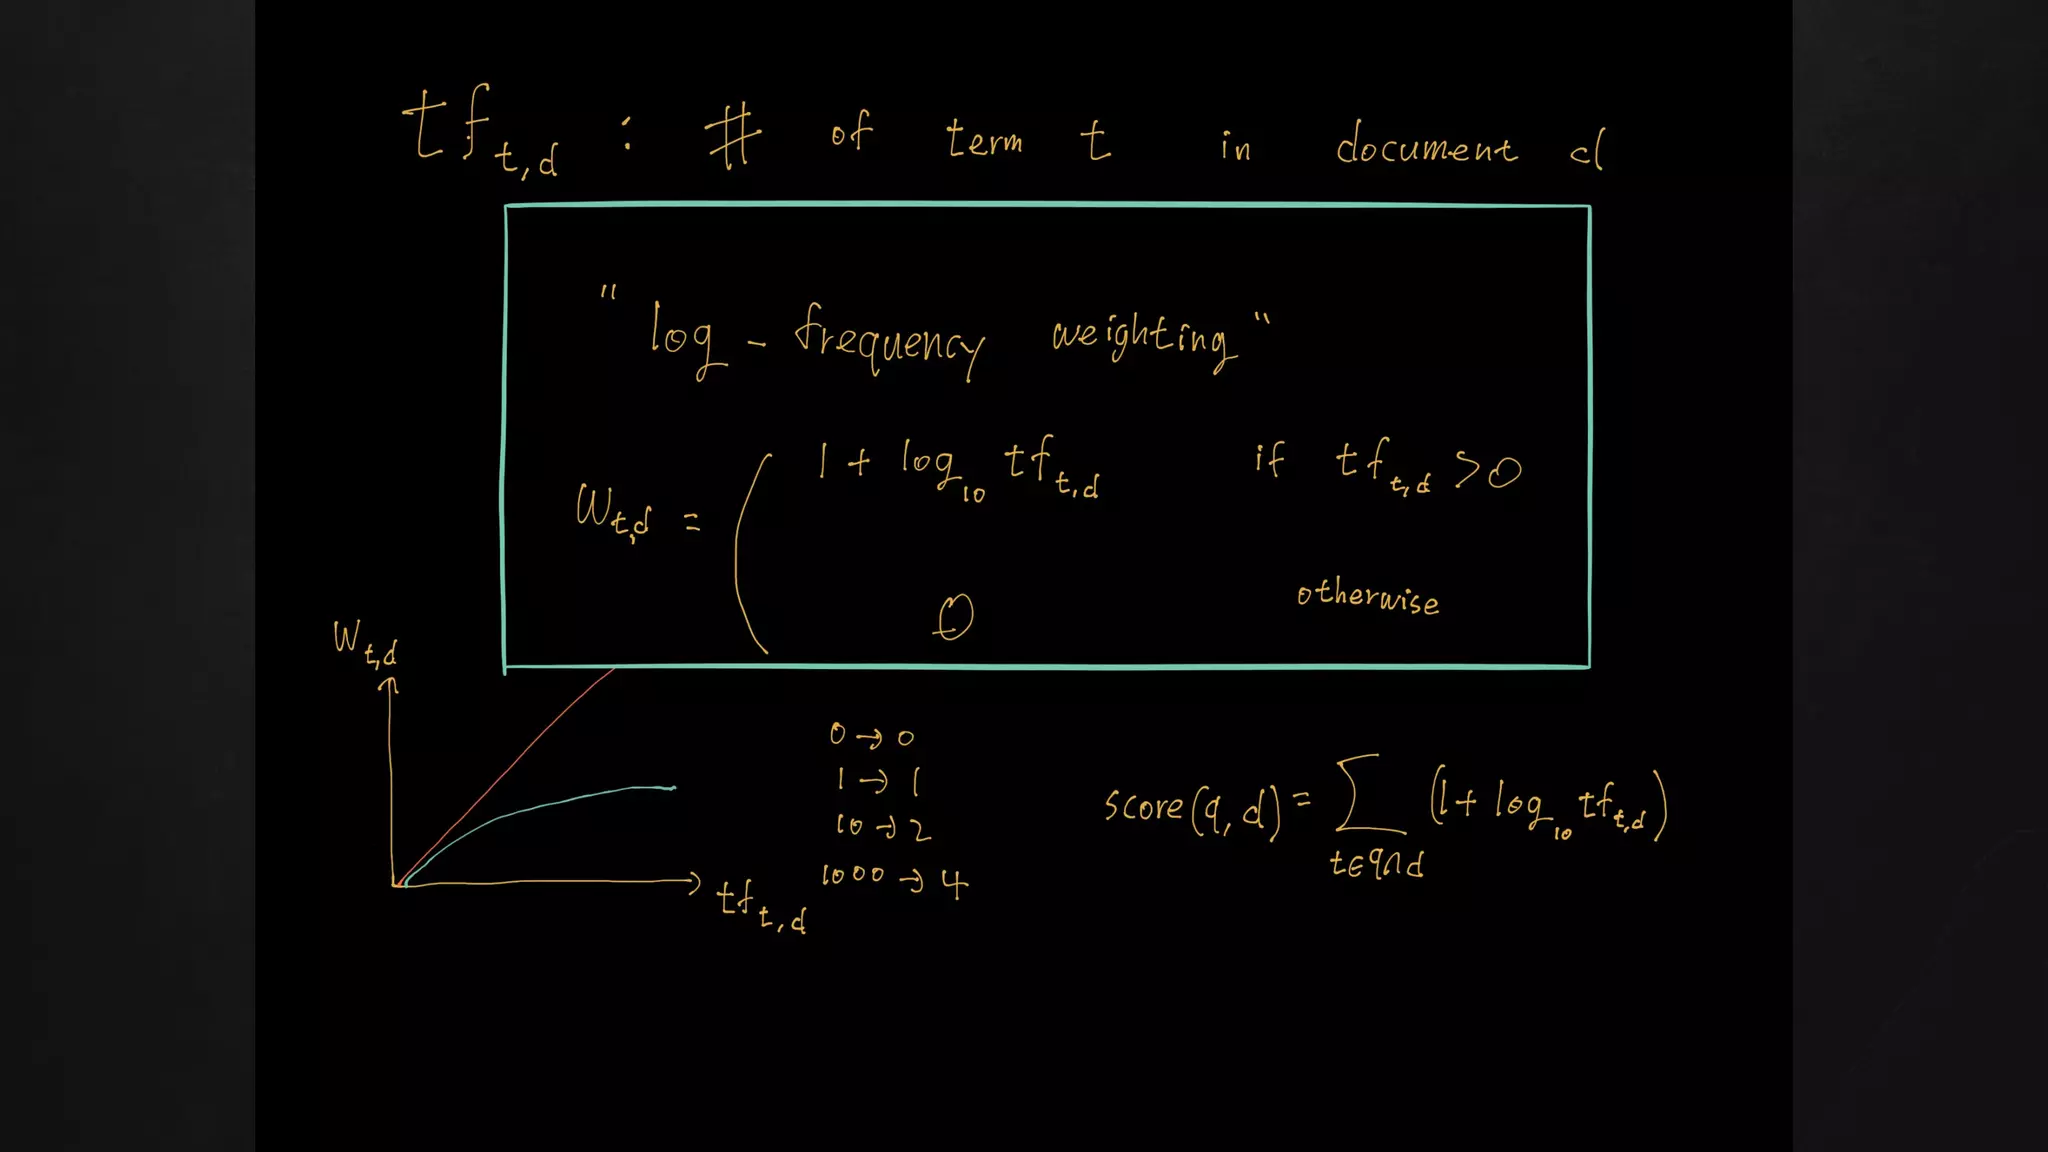 tf t,d : # of term t in document d
"log-frequency weighting"
1 + log10 tf t,d if tf t,d > 0
W t,d =
0 otherwise
W t,d
0 → 0
1 → 1
10 → 2
1000 → 4
tf t,d
score(q, d) = ∑ (1 + log10 tf t,d)
t∈q∩d